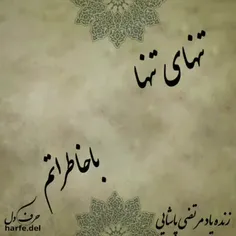 تنهای تنها
با خاطراتم
زنده یاد مرتضی پاشایی
حرف دل
harfe.del